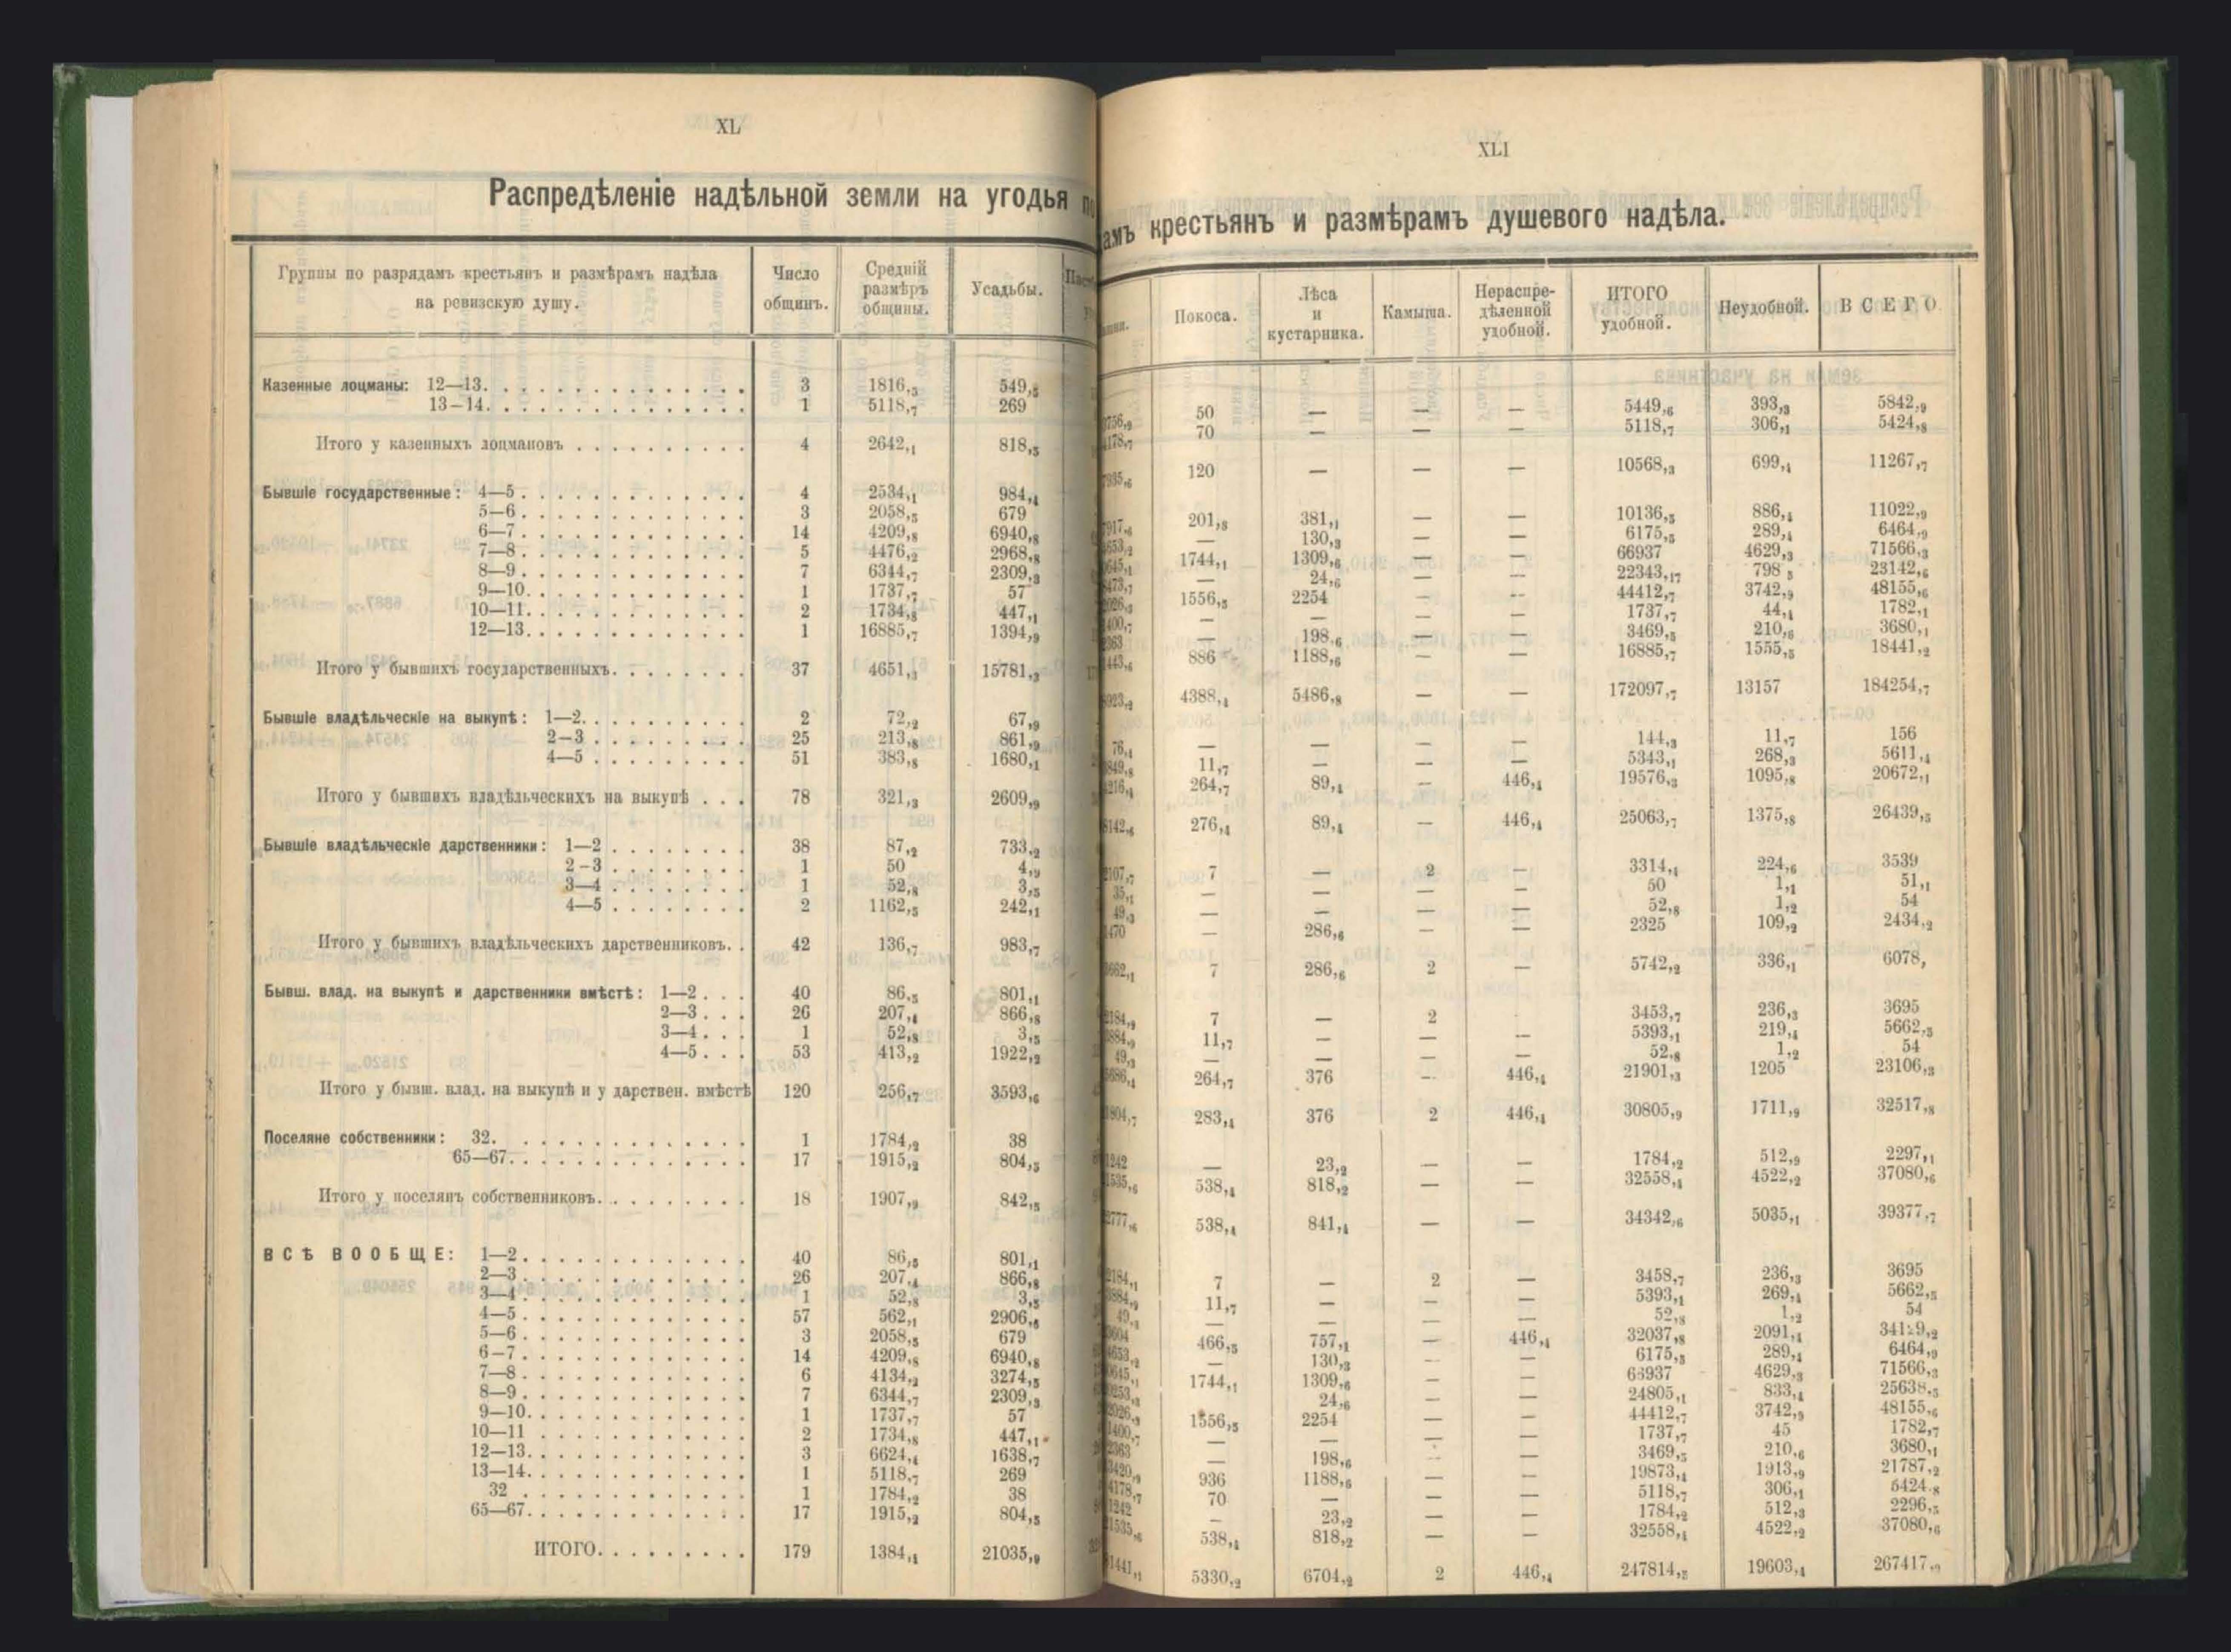 XL
Распредѣленіе надѣльной земли на угодья по
Группы по разрядамъ крестьянъ и размѣрамъ надѣла на ревизскую душу. Число общинъ. Средній размѣръ общины. Усадьбы.
Казенные лоцманы: 12—13. 3 1816,5 549,5
13—14. 1 5118,7 269
Итого у казенныхъ лоцмановъ 4 2642,1 818,5
Бывшіе государственные: 4—5. 4 2534,1 984,4
5—6. 3 2058,5 679
6—7. 14 4209,8 6940,8
7—8. 5 4476,2 2968,8
8—9. 7 6344,7 2309,3
9—10. 1 1737,7 57
10—11. 2 1734,8 447,1
12—13. 1 16885,7 1394,9
Итого у бывшихъ государственныхъ. 37 4651,3 15781,3
Бывшіе владѣльческіе на выкупѣ: 1—2. 2 72,2 67,9
2—3 25 213,8 861,9
4—5 51 383,8 1680,1
Итого у бывшихъ владѣльческихъ на выкупѣ 78 321,3 2609,9
Бывшіе владѣльческіе дарственники: 1—2 38 87,2 733,2
2—3 1 50 4,9
3—4 1 52,8 3,5
4—5 2 1162,5 242,1
Итого у бывшихъ владѣльческихъ дарственниковъ. 42 136,7 983,7
Бывш. влад. на выкупѣ и дарственники вмѣстѣ: 1—2 40 86,5 801,1
2—3 26 207,4 866,8
3—4 1 52,8 3,5
4—5 53 413,2 1922,2
Итого у бывш. влад. на выкупѣ и у дарствен. вмѣстѣ 120 256,7 3593,6
Поселяне собственники: 32. 1 1784,2 38
65—67. 17 1915,2 804,5
Итого у поселянъ собственниковъ. 18 1907,9 842,5
ВСѢ ВООБЩЕ: 1—2. 40 86,5 801,1
2—3 26 207,4 866,8
3—4 1 52,8 3,5
4—5 57 562,1 2906,6
5—6 3 2058,5 679
6—7 14 4209,8 6940,8
7—8 6 4134,2 3274,5
8—9 7 6344,7 2309,3
9—10. 1 1737,7 57
10—11 2 1734,8 447,1
12—13. 3 6624,4 1638,7
13—14. 1 5118,7 269
32 1 1784,2 38
65—67. 17 1915,2 804,5
ИТОГО. 179 1384,4 21035,9
XLI
амъ крестьянъ и размѣрамъ душевого надѣла.
Покоса. Лѣса и кустарника. Камыша. Нераспредѣленной удобной. ИТОГО удобной. Неудобной. ВСЕГО.
50 — — — 5449,6 393,3 5842,9
70 — — — 5118,7 306,1 5424,8
120 — — — 10568,3 699,4 11267,7
201,8 381,1 — — 10136,5 886,4 11022,9
— 130,3 — — 6175,5 289,4 6464,9
1744,1 1309,6 — — 66937 4629,3 71566,3
— 24,6 — — 22343,17 798,5 23142,6
1556,5 2254 — — 44412,7 3742,9 48155,6
— — — — 1737,7 44,4 1782,1
— 198,6 — — 3469,5 210,6 3680,1
886 1188,6 — — 16885,7 1555,5 18441,2
4388,4 5486,8 — — 172097,7 13157 184254,7
— — — — 144,3 11,7 156
11,7 — — — 5343,1 268,3 5611,4
264,7 89,4 — 446,4 19576,3 1095,8 20672,1
276,4 89,4 — 446,4 25063,7 1375,8 26439,5
7 — 2 — 3314,4 224,6 3539
— — — — 50 1,1 51,1
— — — — 52,8 1,2 54
— 286,6 — — 2325 109,2 2434,2
7 286,6 2 — 5742,2 336,1 6078,
7 — 2 3453,7 236,3 3695
11,7 — — — 5393,1 219,4 5662,5
— — — — 52,8 1,2 54
264,7 376 — 446,4 21901,3 1205 23106,3
283,4 376 2 446,4 30805,9 1711,9 32517,8
— 23,2 — — 1784,2 512,9 2297,1
538,4 818,2 — — 32558,4 4522,2 37080,6
538,4 841,4 — — 34342,6 5035,1 39377,7
7 — 2 — 3458,7 236,3 3695
11,7 — — — 5393,1 269,4 5662,5
— — — — 52,8 1,2 54
466,5 757,1 — 446,4 32037,8 2091,4 34129,2
— 130,3 — — 6175,5 289,4 6464,9
1744,1 1309,6 — — 66937 4629,3 71566,3
24,6 — — 24805,1 833,4 25638,5
1556,5 2254 — — 44412,7 3742,9 48155,6
— — — — 1737,7 45 1782,7
— 198,6 — — 3469,5 210,6 3680,1
936 1188,6 — — 19873,4 1913,9 21787,2
70 — — — 5118,7 306,1 5424,8
— 23,2 — — 1784,2 512,3 2296,5
538,4 818,2 — — 32558,4 4522,2 37080,6
5330,2 6704,2 2 446,4 247814,5 19603,4 267417,9